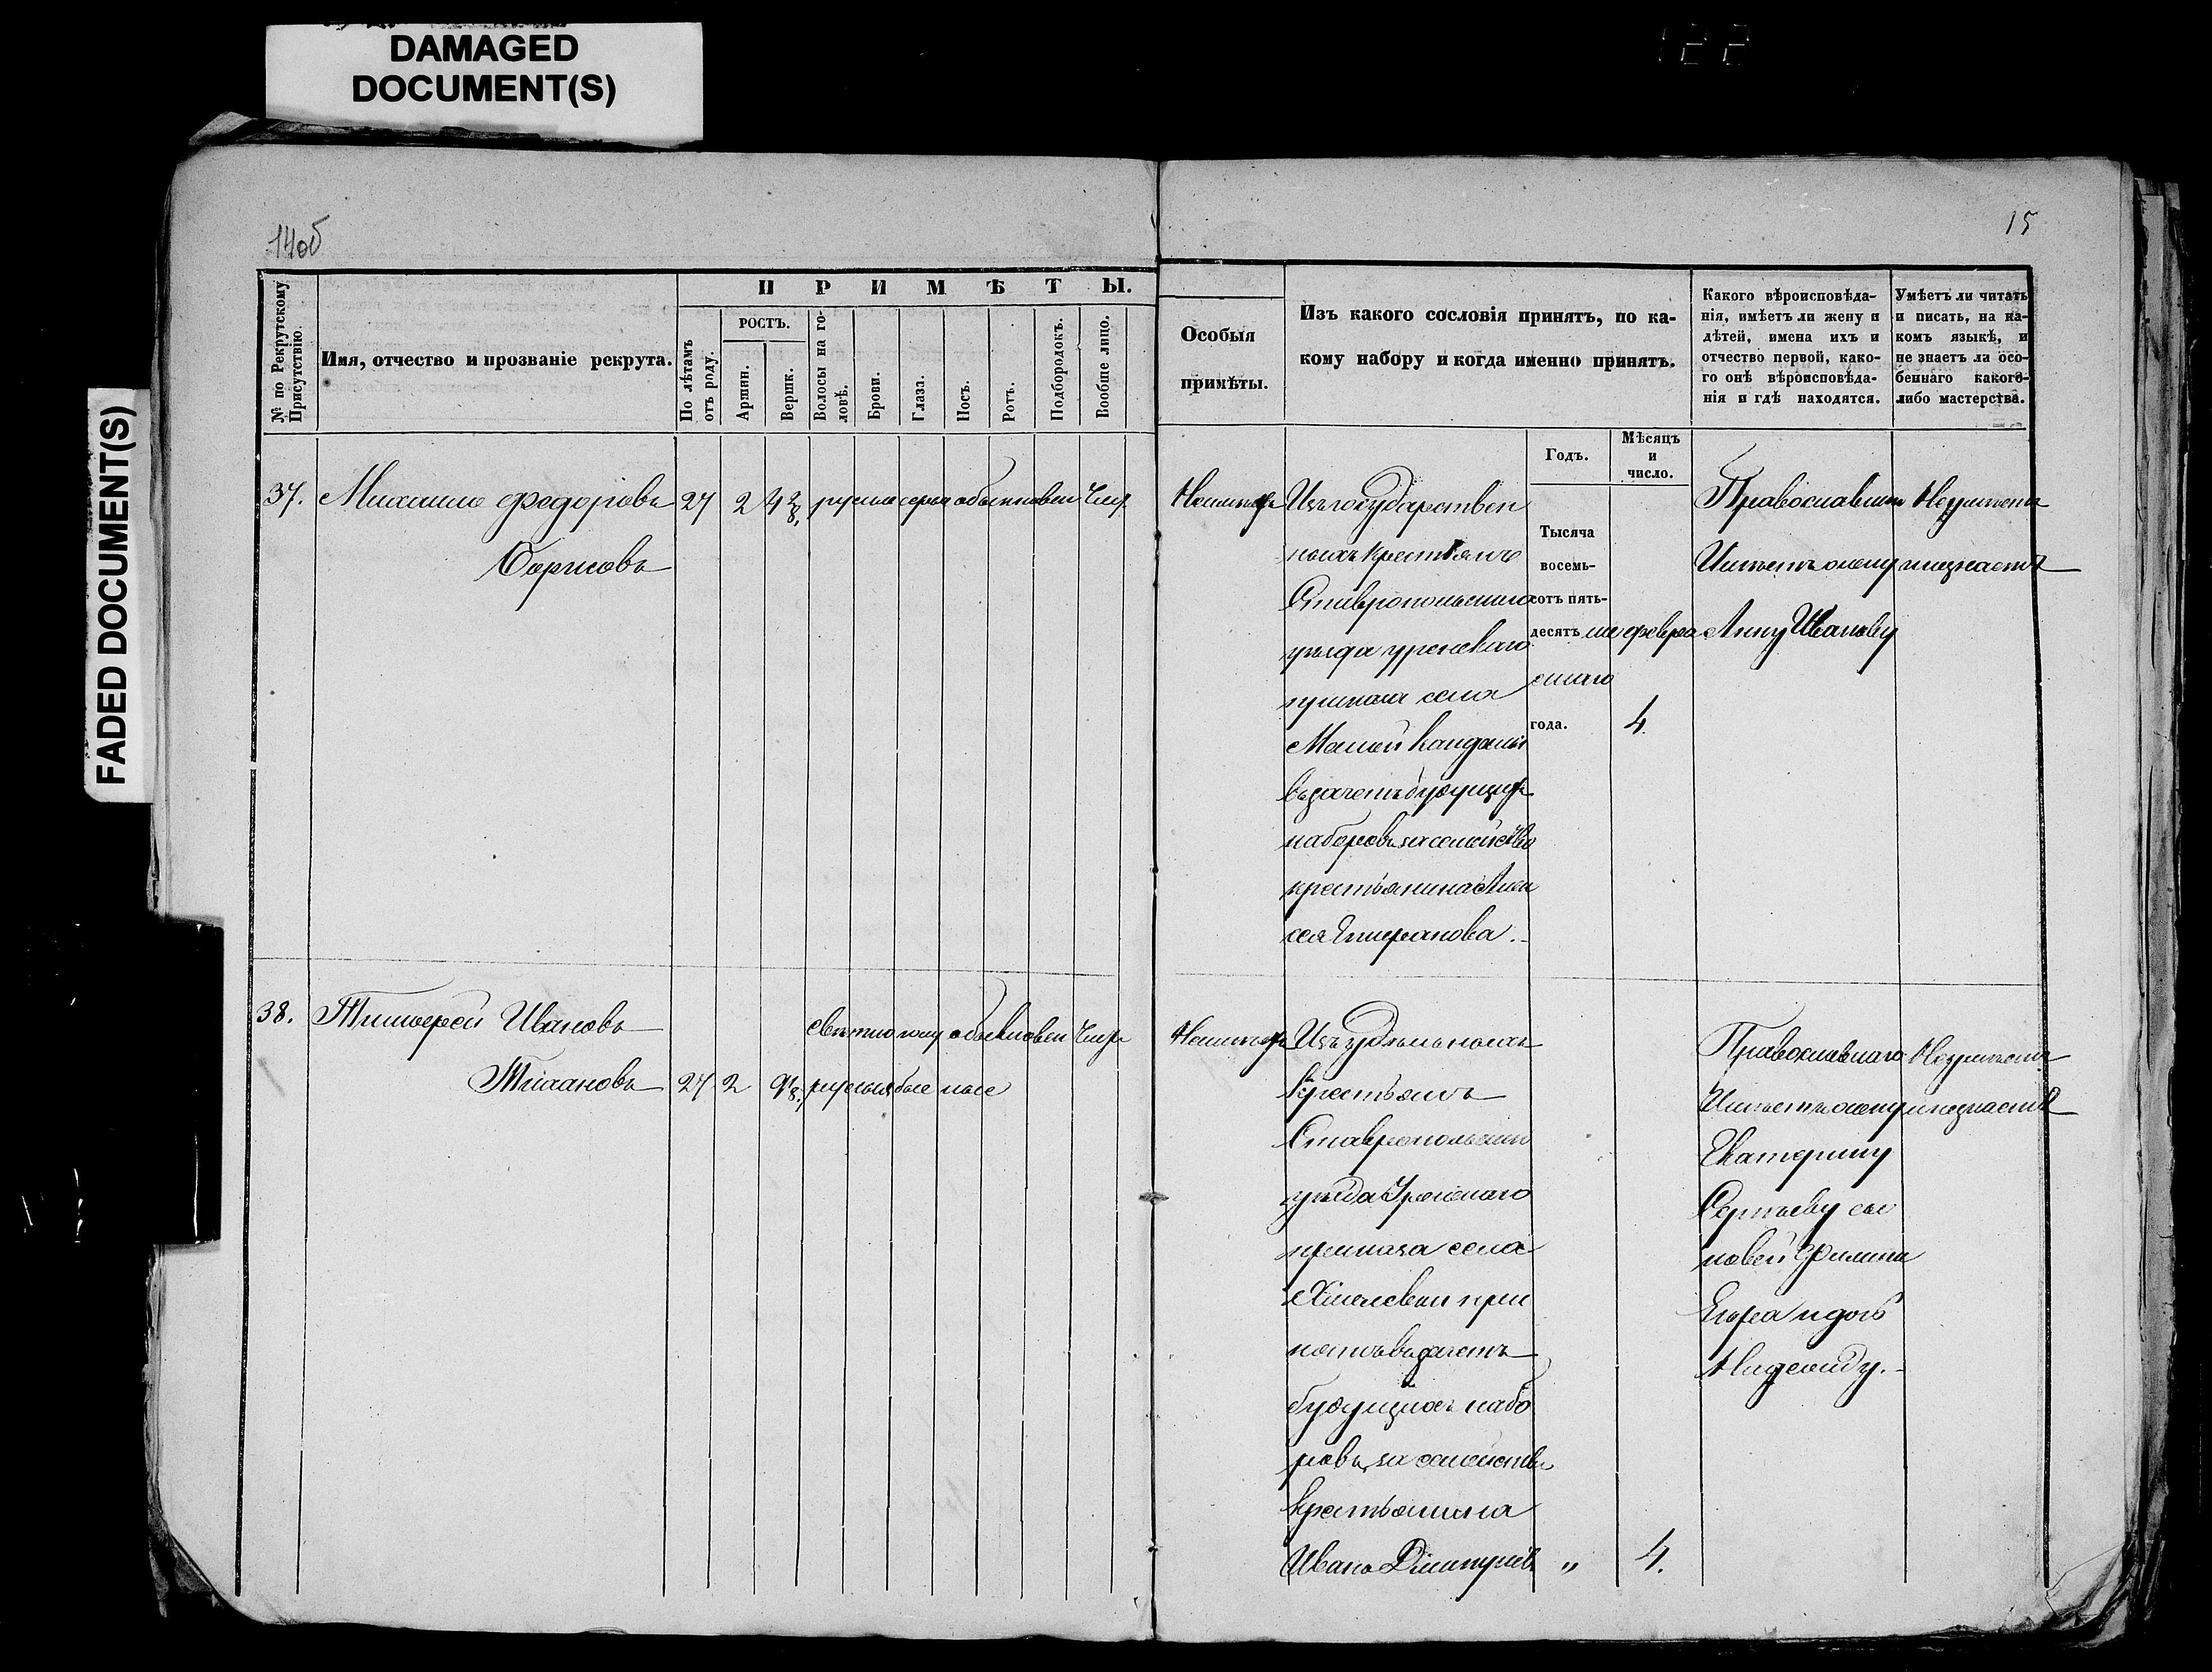 DAMAGED
DOCUMENT(S)
FADED DOCUMENT(S)
122
14об
15
№ по Рекрутскому
Присутствію.
Имя, отчество и прозваніе рекрута.
ПРИМѢТЫ.
По лѣтамъ
отъ роду.
РОСТЪ.
Аршин.
Вершк.
Волосы на го-
ловѣ.
Брови.
Глаза.
Носъ.
Ротъ.
Подбородокъ.
Вообще лицо.
Особыя
примѣты.
Изъ какого сословія принятъ, по ка-
кому набору и когда именно принятъ.
Какого вѣроисповѣда-
нія, имѣетъ ли жену и
дѣтей, имена ихъ и
отчество первой, како-
го онѣ вѣроисповѣда-
нія и гдѣ находятся.
Умѣетъ ли читать
и писать, на ка-
комъ языкѣ, и
не знаетъ ли осо-
беннаго какого-
либо мастерства.
Годъ.
Мѣсяцъ
и
число.
37. Михаило Федоровъ 27 2 4 2/8 русые серые обыкновен чист
Борисовъ
Изъ государствен
ныхъ крестьянъ
Ставропольскаго
уѣзда
села
Малой Кандалы
въ зачетъ будущихъ
наборовъ за семейство
крестьянина Алек
сея
Тысяча
восемь-
сотъ пять-
десятъ ше
стаго
года.
февраля
4.
Православнаго
Имѣетъ жену
Анну Иванову
Неумѣетъ
и незнаетъ
38. Тимофей Ивановъ свѣтло обыкновен чист
Тихановъ 27 2 русые
Изъ удѣльныхъ
крестьянъ
Ставропольскаго
уѣзда
приказа села
при
нятъ въ зачетъ
будущихъ набо
ровъ за семейство
крестьянина
Ивана Дмитріева
„
4.
Православнаго
Имѣетъ жену
Екатерину
Сергѣеву сы
новей Филипа
Егора и дочь
Надежду.
Неумѣетъ
и незнаетъ